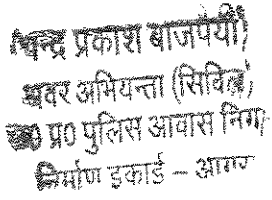 (चन्द्र प्रकाश बाजपेयी)
अवर अभियन्ता (सिविल)
उ0 प्र0 पुलिस आवास निग
निर्माण इकाई – आगरा